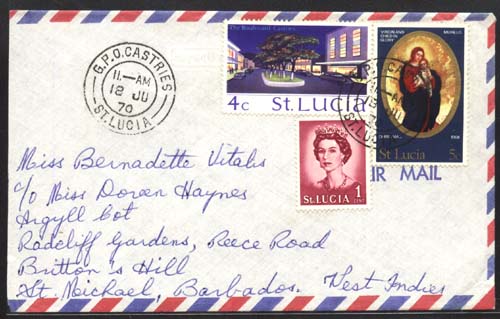 G.P.O. CASTRIES
11.-AM
18 JU
70
ST. LUCIA
The Boulevard Castries
4c St. Lucia
VIRGIN AND CHILD IN GLORY
MURILLO
CHRISTMAS 1968
St Lucia 5c
ST. LUCIA 1 CENT
AIR MAIL
Miss Bernadette Vitalis
c/o Miss Doreen Haynes
Argyll Cot
Radcliff Gardens, Reece Road
Britton's Hill
St. Michael, Barbados. West Indies